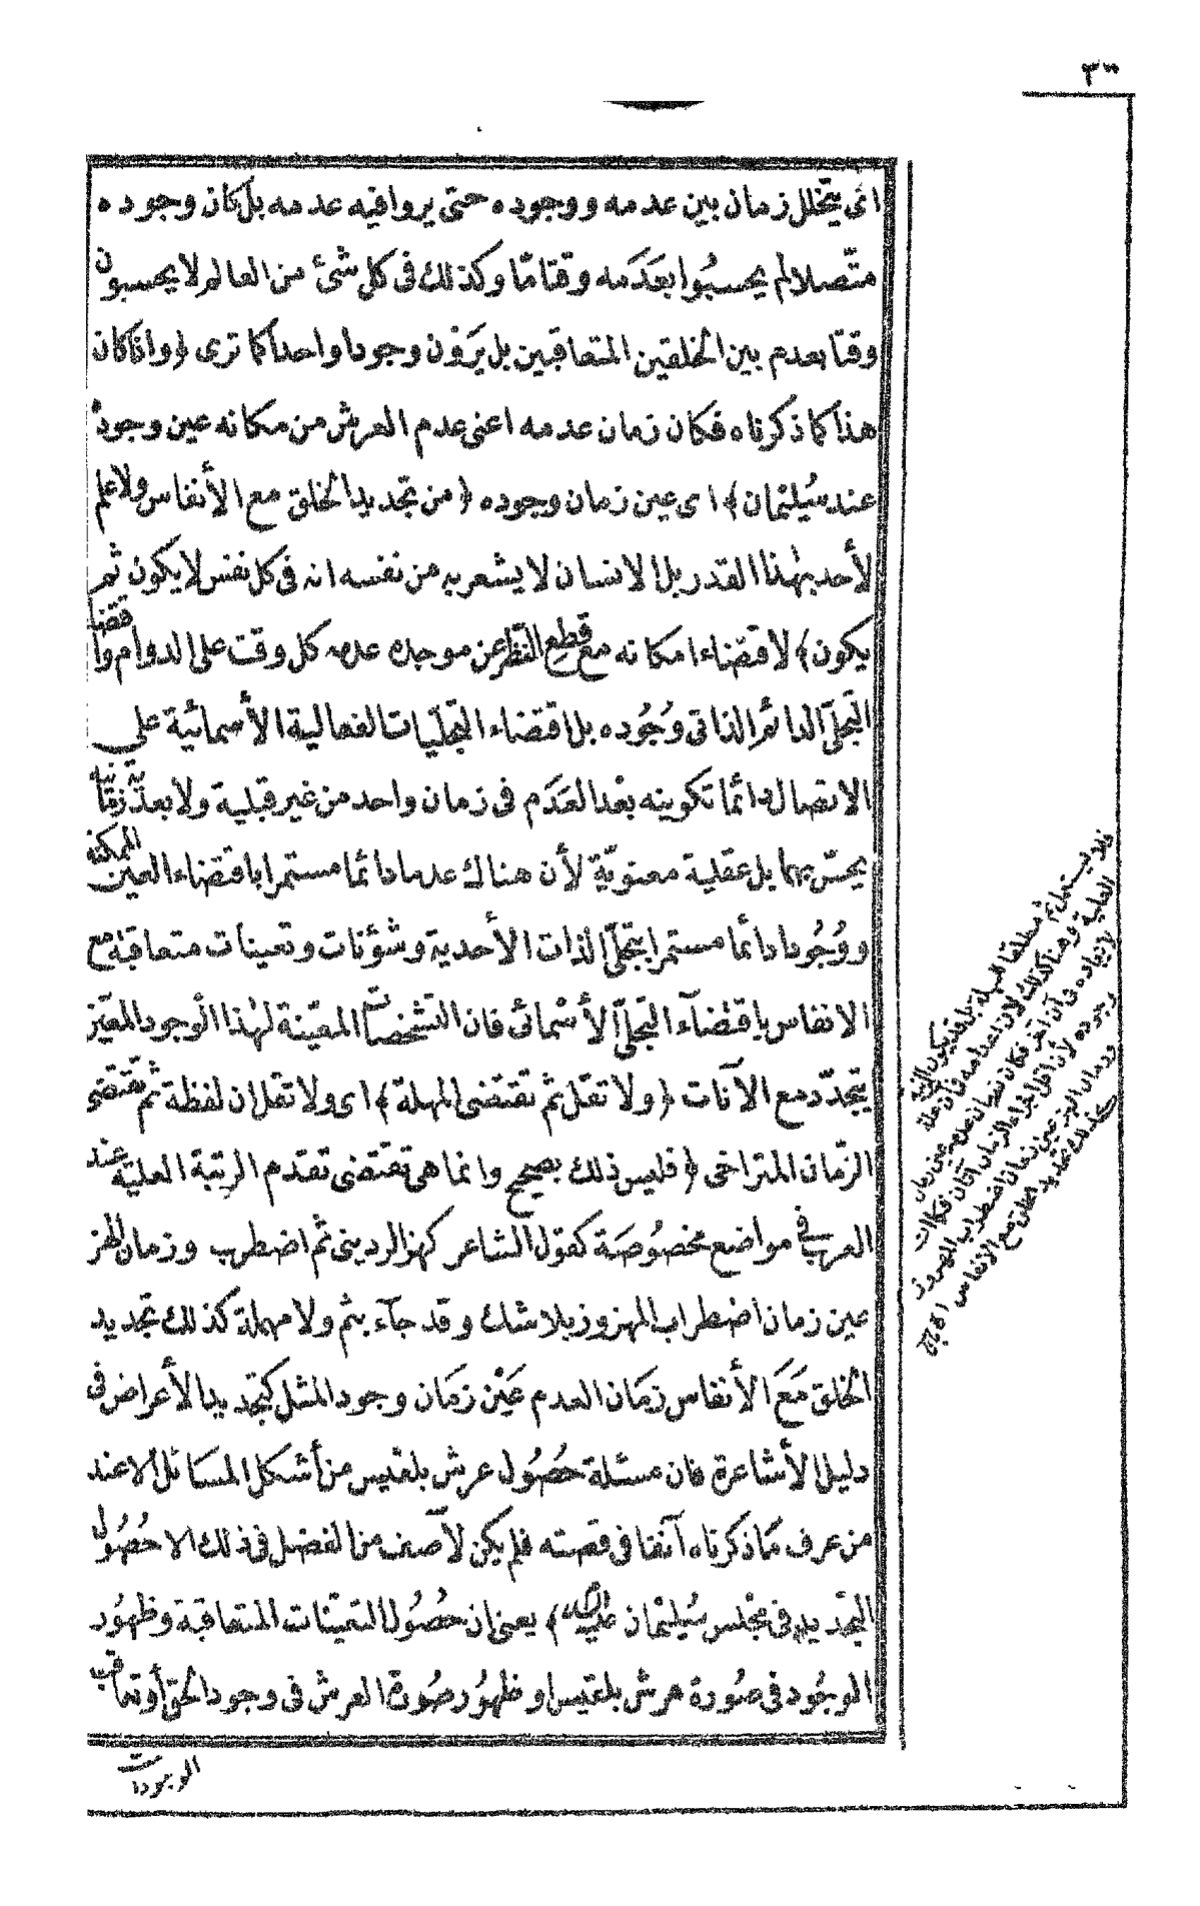 ٣٠
اى يتخلل زمان بين عدمه ووجوده حتى يروا فيه عدمه بل كان وجوده
متّصلا لم يحسبُوا بعَدَمه وقتا مّا وكذلك فى كل شئ من العالم لا يحسبون
وقتا بعدم بين الخلقين المتعاقبين بل يَرَوْن وجودا واحدا كما ترى ﴿واذا كان
هذا كما ذكرناه فكان زمان عدمه اعنى عدم العرش من مكانه عين وجوده
عند سُليمان﴾ اى عين زمان وجوده ﴿من تجديد الخلق مع الأنفاس ولا علم
لأحد بهٰذا القدر بل الانسان لا يشعر به من نفسه انه فى كل نفس لا يكون ثم
يكون﴾ لاقتضاء امكانه مع قطع النظر عن موجده عدمه كل وقت على الدوام واقتضاء
التجلّى الدائم الذاتى وُجُوده بل اقتضاء التجلّيات الفعالية الأسمائية على
الاتصال دائما تكوينه بعْد العَدَم فى زمان واحد من غير قبلية ولا بعدّية زمانية
يحسّ بهما بل عقلية معنويّة لأن هناك عدما دائما مستمرا باقتضاء العين الممكنة
ووُجُودا دائما مستمرا بتجلّى الذات الأحدية وشؤنات وتعينات متعاقبة مع
الانفاس باقتضآء التجلّى الأسْمائى فان التشخصات المعيّنة لهٰذا الوجود المعيّن
يتجدّد مع الآنات ﴿ولا تقل ثم تقتضى المهلة﴾ اى ولا تقل ان لفظة ثم تقتضى
الزّمان المتراخى ﴿فليس ذلك بصحيح وانما هى تقتضى تقدم الرتبة العلية عند
العرب فى مواضع مخصُوصَة كقول الشاعر كهز الردينى ثم اضطرب وزمان الهز
عين زمان اضطراب المهزوز بلا شك وقد جآء بثم ولا مهلة كذلك تجديد
الخلق مَعَ الأنفاس زمان العدم عَيْن زمَان وجود المثل كتجديد الأعراض فى
دليل الأشاعرة فان مسئلة حصُول عرش بلقيس من أشكل المسَائل الا عند
من عرف مَا ذكرناه آنفا فى قصته فلم يكن لآصف من الفضل فى ذلك الا حُصُول
التجديد فى مجْلس سُليْمان عليه السلام﴾ يعنى ان حصُول التعيّنات المتعاقبة وظهُور
الوجُود فى صُورة عرش بلقيس او ظهُور صُورة العرش فى وجود الحق أو تعاقب
الوجودات
ولا يستعمل ثم مطلقا للمهلة بل قد يكون لتقدم
وزمان الهز عين زمان اضطراب المهزوز
كذلك تجديد الخلق مع الانفاس